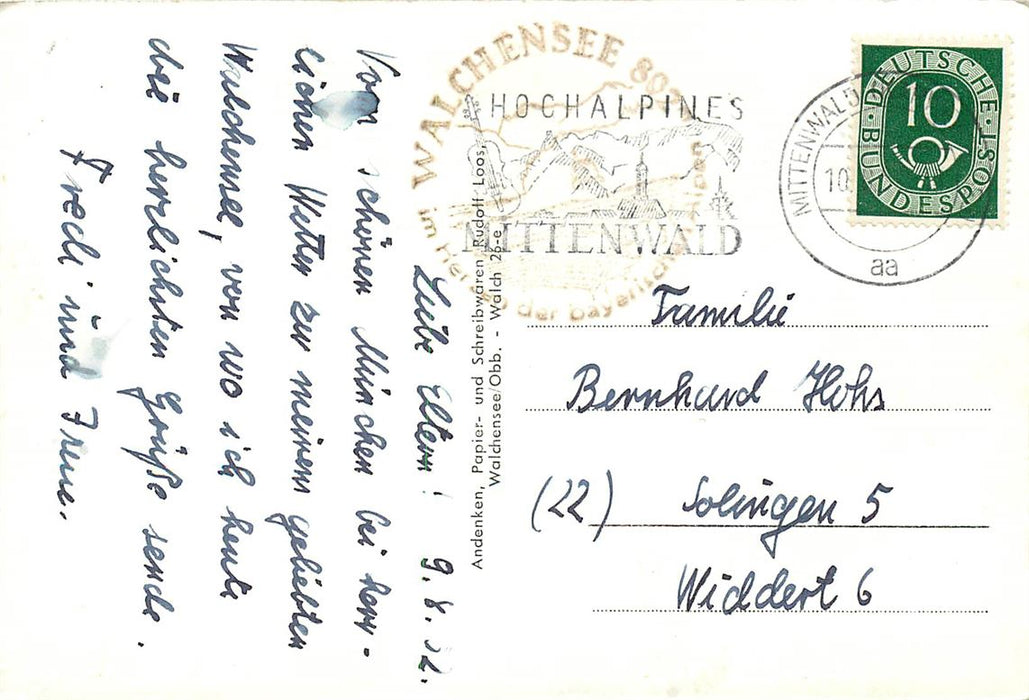 Liebe Eltern! 9.8.52.
Vom schönen München bei herr-
lichen Wetter zu meinem geliebten
Walchensee, von wo ich heute
die herzlichsten Grüße sende.
Fredi und Irene.
WALCHENSEE 80
im Her der bayerisch Alpen
HOCHALPINES
MITTENWALD
MITTENWALD
10.
aa
DEUTSCHE
BUNDESPOST
10
Andenken, Papier- und Schreibwaren Rudolf Loos,
Walchensee/Obb. - Walch 26-e
Familie
Bernhard Hohs
(22) Solingen 5
Widdert 6